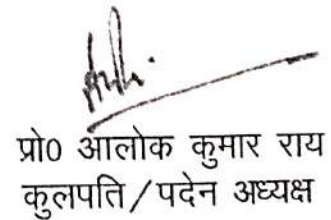 प्रो0 आलोक कुमार राय
कुलपति/पदेन अध्यक्ष